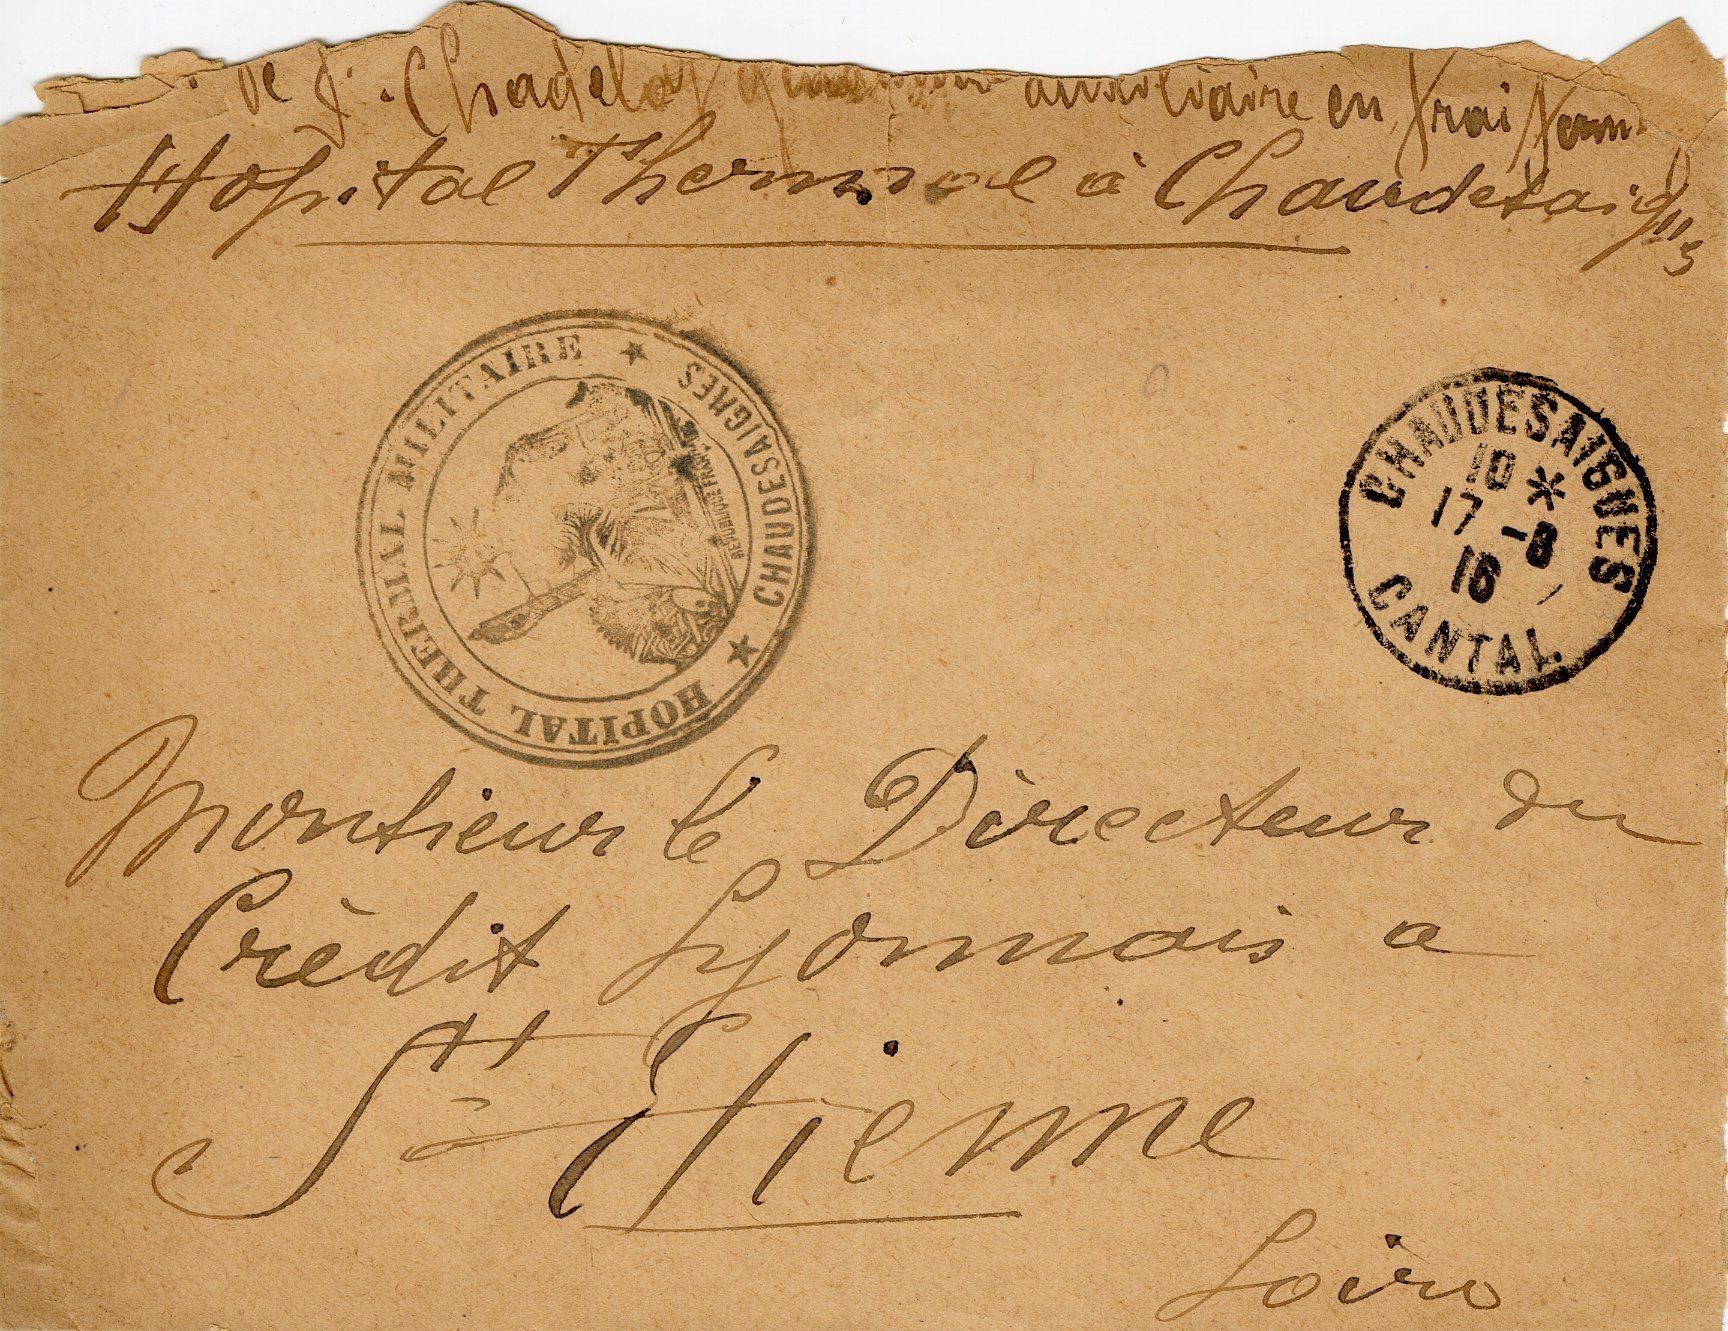 de J. Chadelas auxiliaire en
Hopital Thermal à Chaudesaigues
HOPITAL THERMAL MILITAIRE
★ CHAUDESAIGUES ★
REPUBLIQUE FRANÇAISE
CHAUDESAIGUES
10 *
17 -8
16
CANTAL
Monsieur le Directeur du
Crédit Lyonnais a
St Etienne
Loire